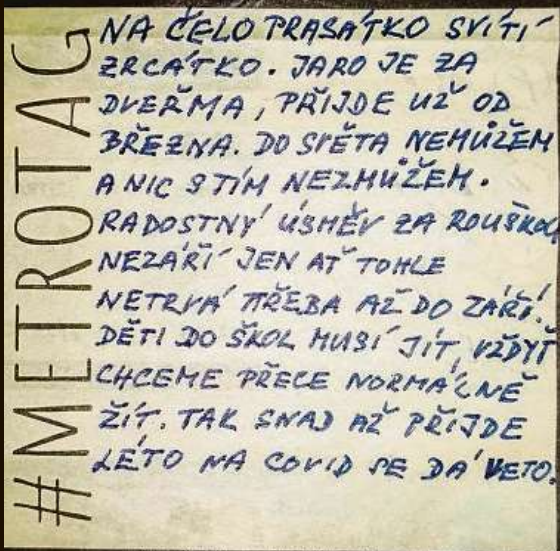 #METROTAG
NA ČELO PRASÁTKO SVÍTÍ
ZRCÁTKO. JARO JE ZA
DVEŘMA, PŘIJDE UŽ OD
BŘEZNA. DO SVĚTA NEMŮŽEM
A NIC S TÍM NEZMŮŽEM.
RADOSTNÝ ÚSMĚV ZA ROUŠKOU
NEZÁŘÍ JEN AŤ TOHLE
NETRVÁ TŘEBA AŽ DO ZÁŘÍ.
DĚTI DO ŠKOL MUSÍ JÍT, VŽDYŤ
CHCEME PŘECE NORMÁLNĚ
ŽÍT. TAK SNAD AŽ PŘIJDE
LÉTO NA COVID SE DÁ VETO.